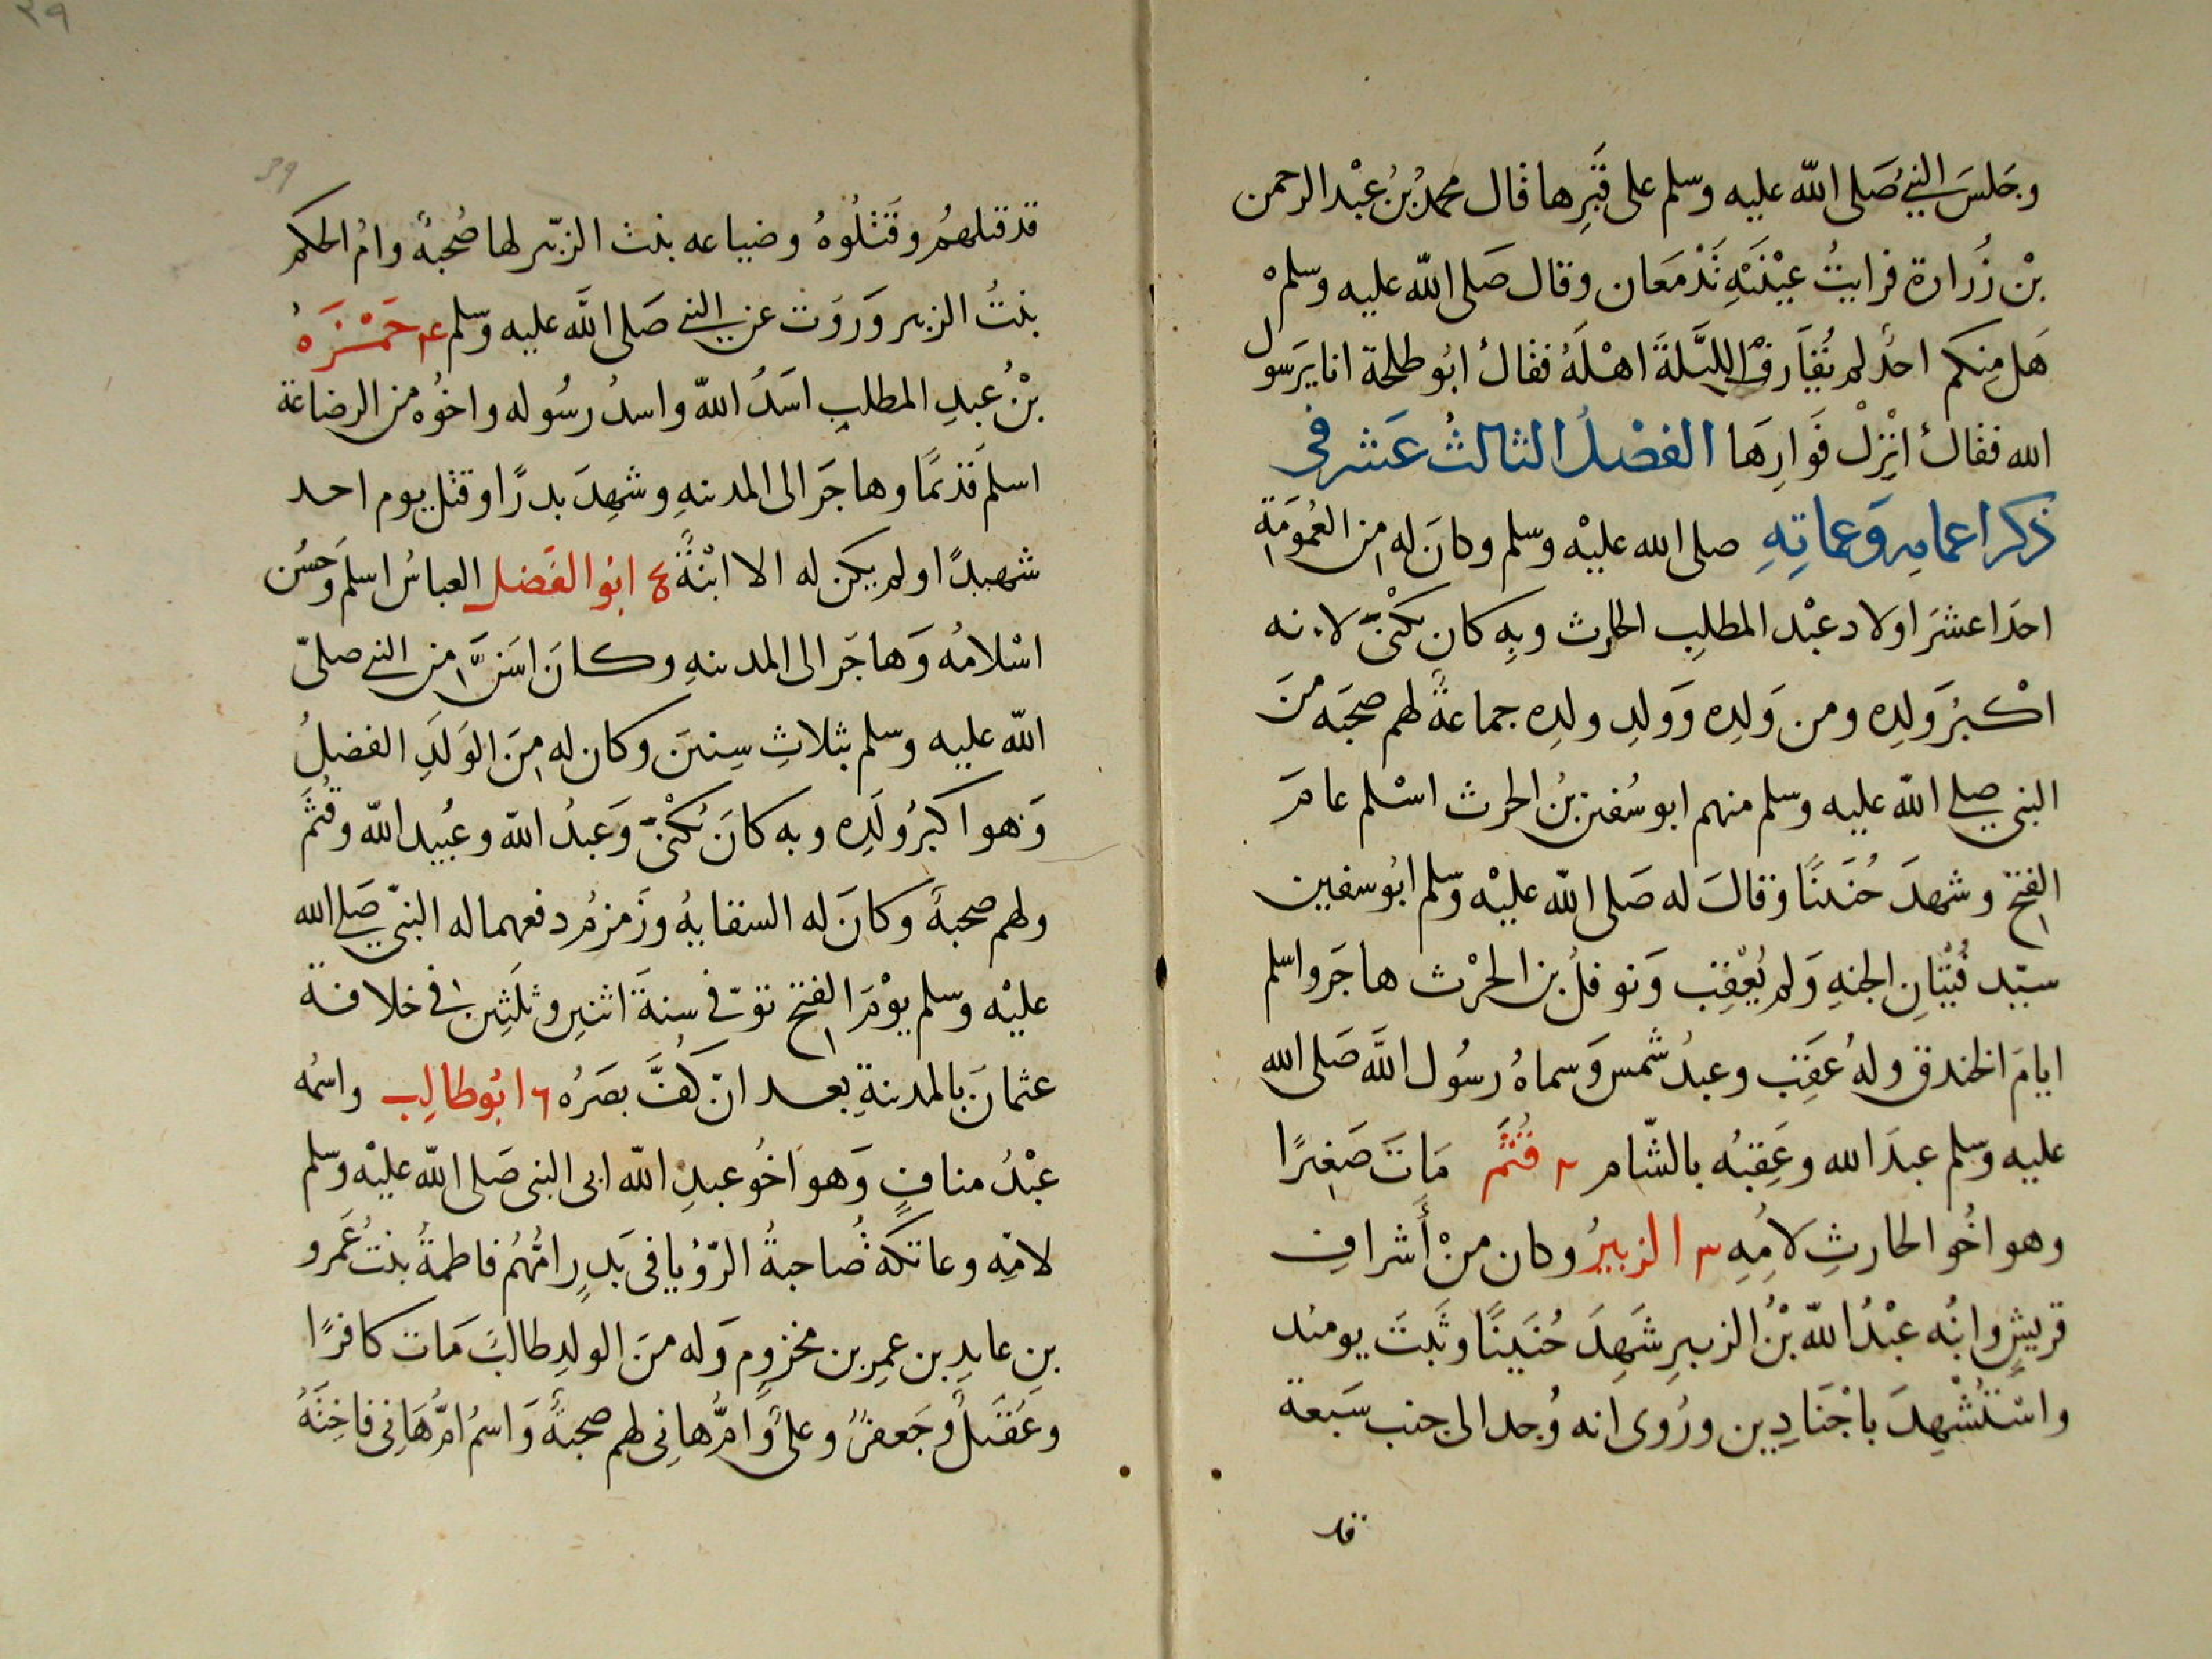 وجَلسَ النبيُ صَلى الله عليه وسلم على قَبرِها قال محمدُ بنُ عبْد الرحمن
بْن زُرارة فرايتُ عيْنَيْهِ تَدْمَعان وقال صَلى الله عليه وسلم
هَل مِنكم احدٌ لم يُقارفْ الليَّلةَ اهْلَهُ فقالَ ابُو طلحة انا يرَسول
الله فقالَ انْزِلْ فَوارِهَا الفصْلُ الثالثُ عَشر فى
ذكر اعمامِه وَعماتِهِ صلى الله عليْه وسلم وكانَ له من العُمومَةِ
احَدَا عشَر اولاد عبْد المطلبِ الحارث وبِه كان يُكْنَّى لانه
اكْبرُ وَلدِه ومن وَلدِه وَولدِ ولدِه جماعةٌ لهم صحبَه منَ
النبى صلى الله عليه وسلم منهم ابو سُفين بنُ الحرث اسْلم عامَ
الفتح وشهدَ حُنَينًا وقالَ له صَلى الله عليْه وسلم ابُو سفين
سيّد فُتيَانِ الجنهِ وَلم يُعْقِب وَنوفلُ بن الحرْث هاجَر واسلم
ايامَ الخندق ولهُ عَقِب وعبدُ شمس وَسماهُ رسُول اللَّه صَلى الله
عليه وسلم عبدَ الله وعَقِبُه بالشّام ٢ قُثَمُ مَاتَ صَغِيرًا
وهو اخُو الحارثِ لامِهِ ٣ الزبيرُ وكان منْ أشرافِ
قريشٍ وابنُه عبْدُ اللّه بْنُ الزبيرِ شَهِدَ حُنَينًا وثَبتَ يومئذ
واسْتُشْهِدَ باجْنَادِين ورُوى انه وُجد الى جنب سَبعة
قد
قد قتلهُم وقَتلُوهُ وضباعه بنت الزبير لها صُحبةٌ وامُ الحكم
بنتُ الزبير وَروَت عن النبي صَلى اللَّه عليه وسلم ٤ حَمْزَهُ
بْنُ عبدِ المطلبِ اسَدُ اللّه واسدُ رسُوله واخوُه من الرضاعة
اسلمَ قَديمًا وهاجَر الى المدينهِ وشهِدَ بدرًا وقتل يوم احد
شهيدًا ولم يكن له الا ابنْةٌ ٥ ابُو الفَضل العباسُ اسلمَ وَحسُن
اسْلامُه وَهاجَر الى المدينهِ وكانَ اسَنَّ من النبي صلىّ
اللّه عليه وسلم بثلاثِ سِنينَ وكان له مِنَ الوَلَدِ الفضلُ
وَهو اكبرُ وُلَدِه وبه كانَ يُكْنَّى وَعبدُ اللّه وعُبَيد اللّه وقُثَم
ولهم صحبةٌ وكانَ له السقايهُ وزَمزمُ دفعهما له النبّى صَلى الله
عليْه وسلم يوْمَ الفتح توّفى سِنةَ اثنين وثلثين فى خلافة
عثمانَ بالمدينةِ بعد انّ كُفَّ بصَرُه ٦ ابُو طالِب واسمُه
عبْدُ منافٍ وَهو اخُو عبدِ اللّه ابى النبى صَلى اللّه عليْه وسلم
لامّه وعاتكةُ صُاحبةُ الرّؤيا فى بَدٍر امُّهُم فاطمةُ بنتُ عَمرو
بنِ عايدِ بن عمرِ بن مخزومٍ وَله منَ الولدِ طالبٌ مَات كافرًا
وعَقيلٌ وجَعفرٌ وعلىٌ وَامُّ هانِى لهم صحبةٌ وَاسمُ امّ هَانِى فاخِتَةُ
39
٣٩